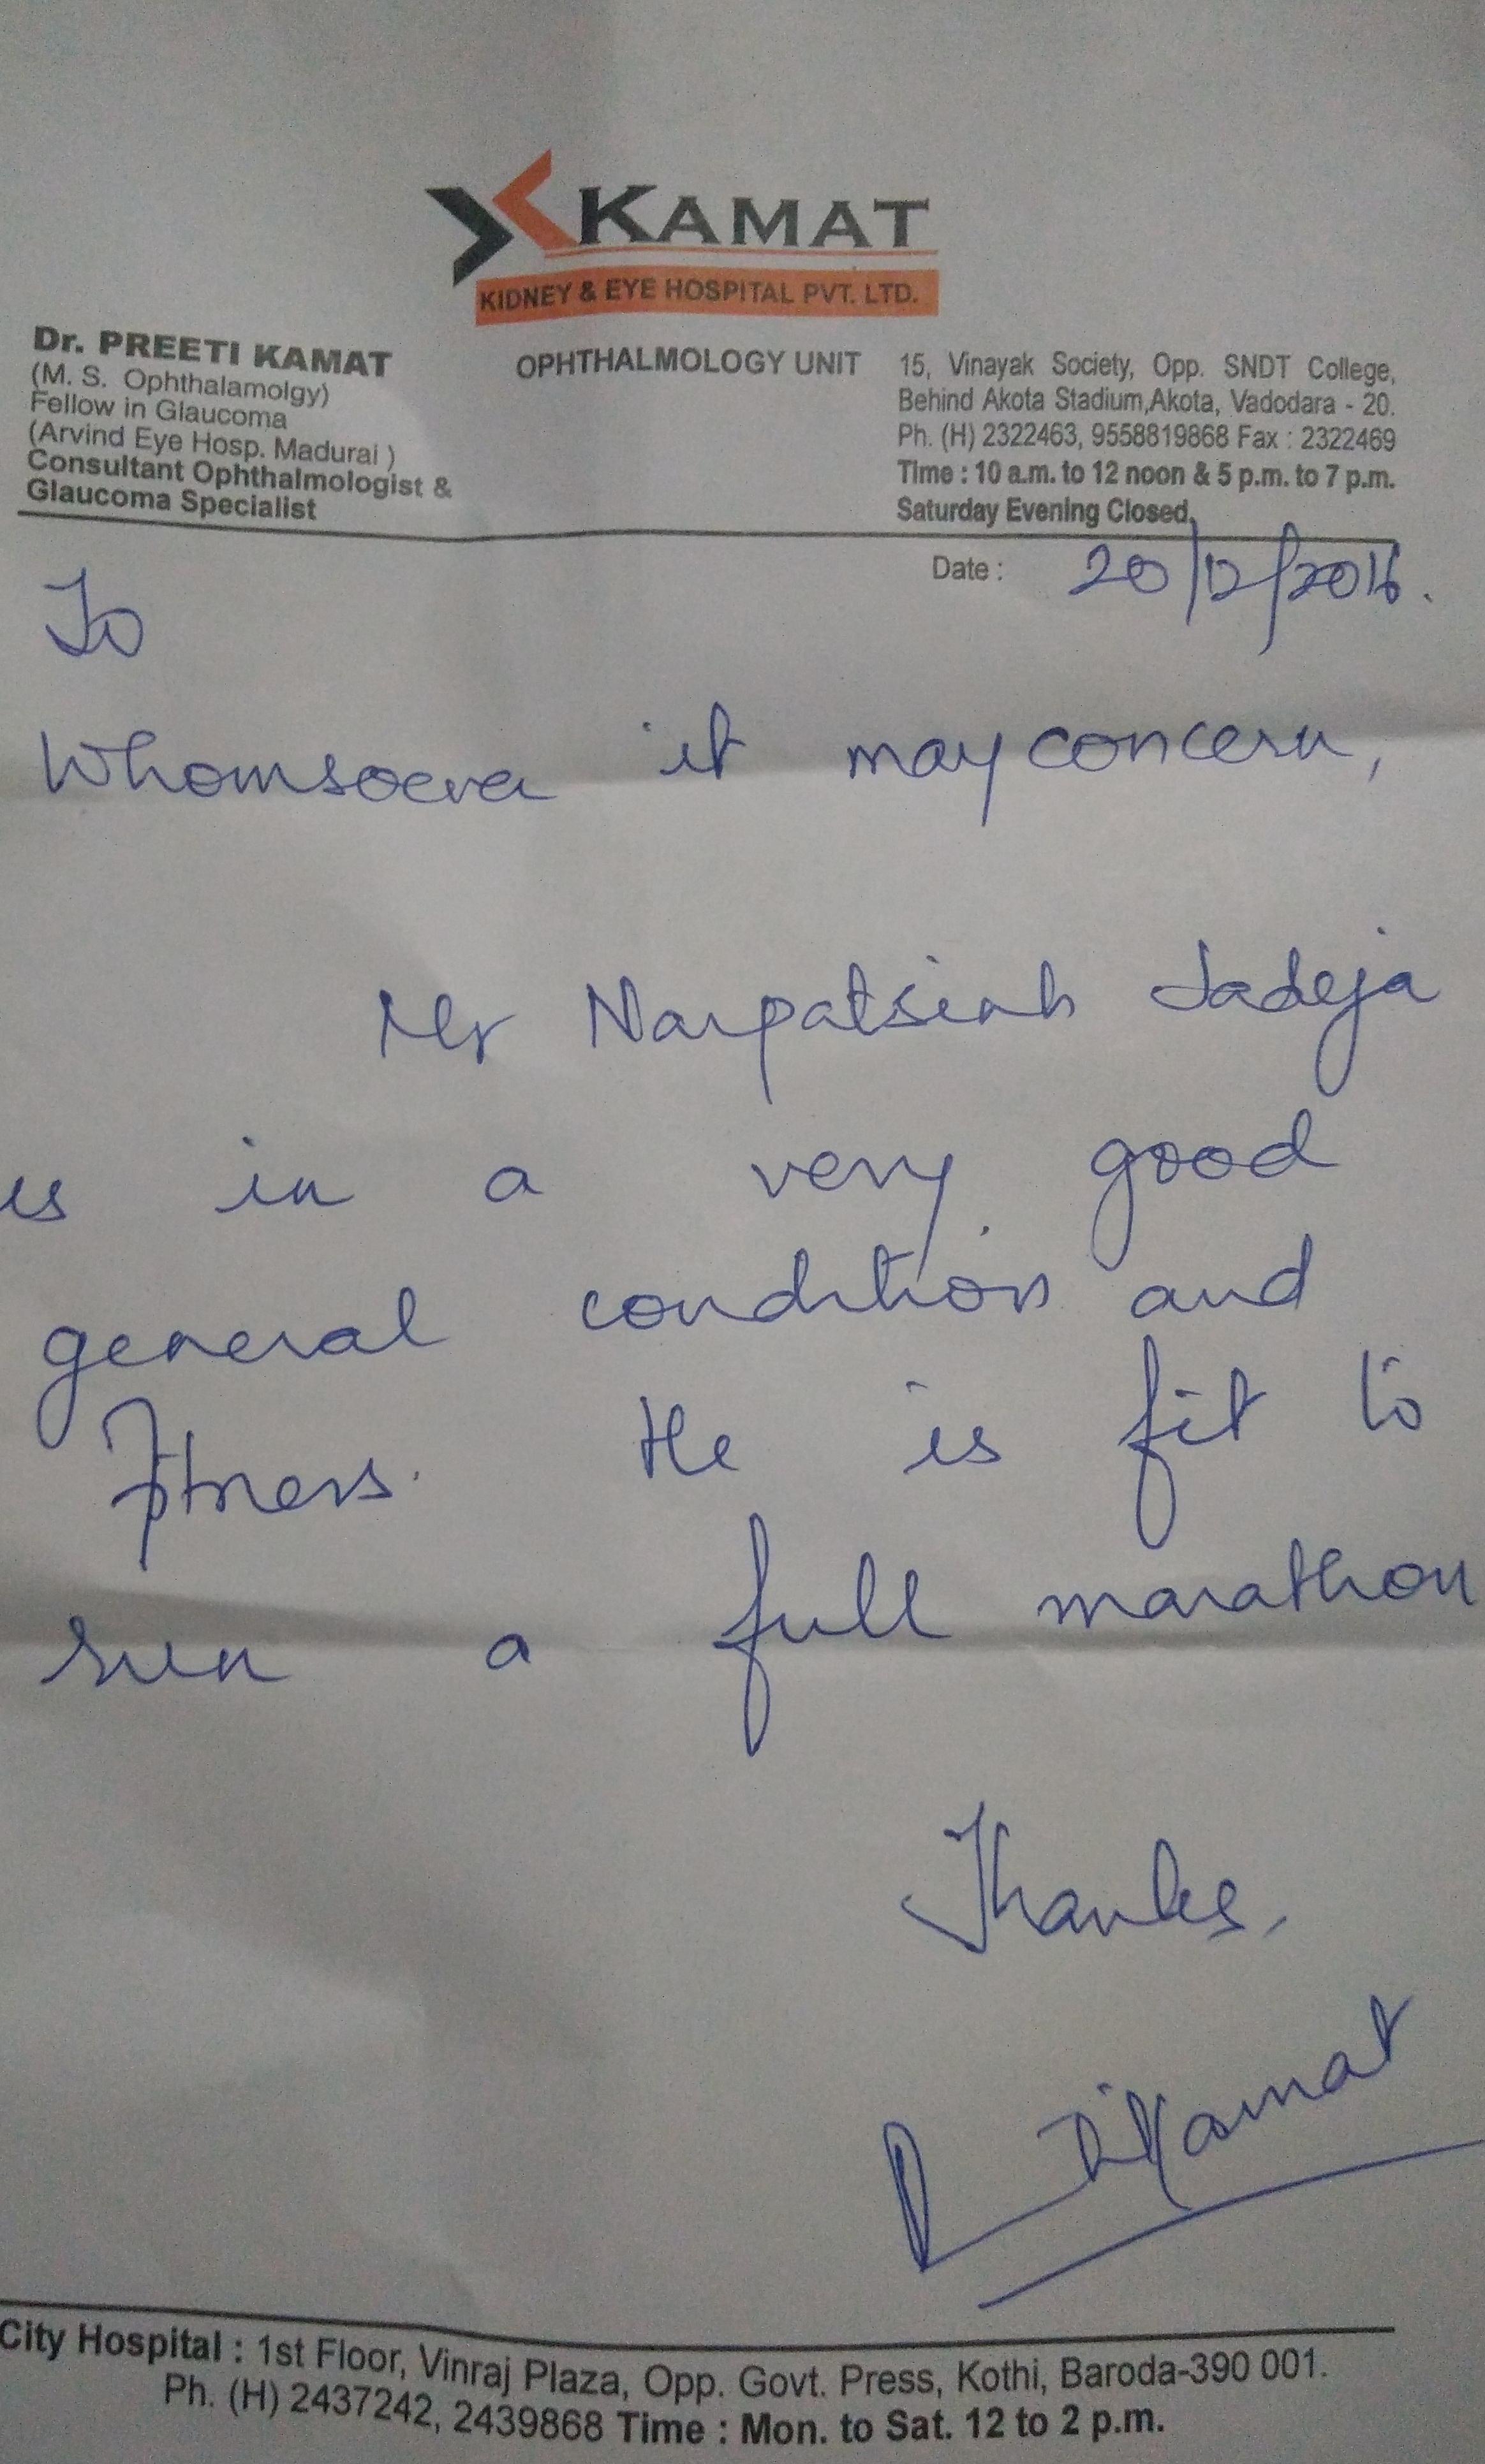 KAMAT
KIDNEY & EYE HOSPITAL PVT. LTD.
Dr. PREETI KAMAT
(M. S. Ophthalamolgy)
Fellow in Glaucoma
(Arvind Eye Hosp. Madurai )
Consultant Ophthalmologist &
Glaucoma Specialist
OPHTHALMOLOGY UNIT
15, Vinayak Society, Opp. SNDT College,
Behind Akota Stadium,Akota, Vadodara - 20.
Ph. (H) 2322463, 9558819868 Fax : 2322469
Time : 10 a.m. to 12 noon & 5 p.m. to 7 p.m.
Saturday Evening Closed.
Date : 20/12/2016.
To
Whomsoever it may concern,
Mr Narpatsinh Jadeja
is in a very good
general condition and
fitness. He is fit to
run a full marathon
Thanks,
Kamat
City Hospital : 1st Floor, Vinraj Plaza, Opp. Govt. Press, Kothi, Baroda-390 001.
Ph. (H) 2437242, 2439868 Time : Mon. to Sat. 12 to 2 p.m.